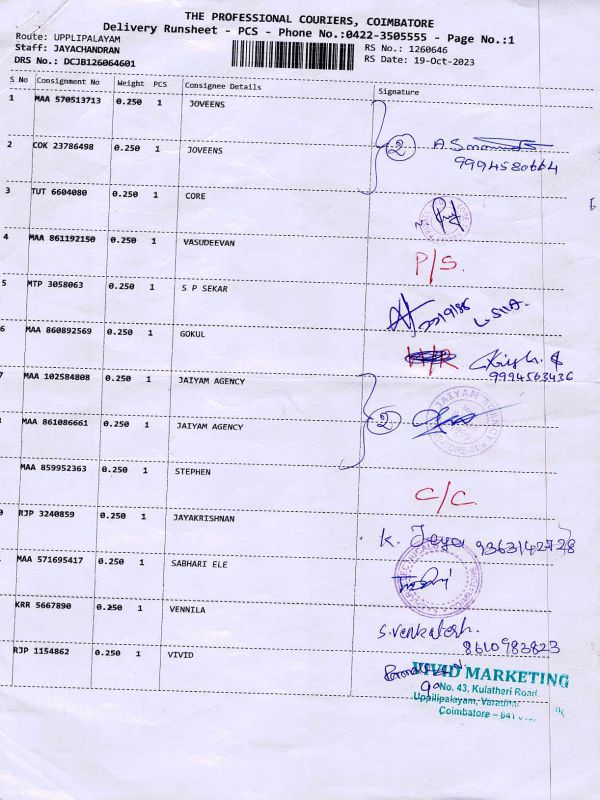 THE PROFESSIONAL COURIERS, COIMBATORE
Delivery Runsheet - PCS - Phone No.:0422-3505555 - Page No.:1
Route: UPPLIPALAYAM
Staff: JAYACHANDRAN
RS No.: 1260646
DRS No.: DCJB126064601
RS Date: 19-Oct-2023
S No Consignment No Weight PCS Consignee Details Signature
1 MAA 570513713 0.250 1 JOVEENS
2 COK 23786498 0.250 1 JOVEENS
2
9994580664
3 TUT 6604080 0.250 1 CORE
4 MAA 861192150 0.250 1 VASUDEEVAN
P/S.
5 MTP 3058063 0.250 1 S P SEKAR
6 MAA 860892569 0.250 1 GOKUL
9994563436
7 MAA 102584808 0.250 1 JAIYAM AGENCY
MAA 861086661 0.250 1 JAIYAM AGENCY
2
JAIYAM AGENCY
MAA 859952363 0.250 1 STEPHEN
C/C.
RJP 3240859 0.250 1 JAYAKRISHNAN
K. Jeya 9363142728
MAA 571695417 0.250 1 SABHARI ELE
KRR 5667890 0.250 1 VENNILA
S.venkatesh.
8610983823
RJP 1154862 0.250 1 VIVID
VIVID MARKETING
No. 43, Kulatheri Road
Uppilipalayam,
Coimbatore - 641